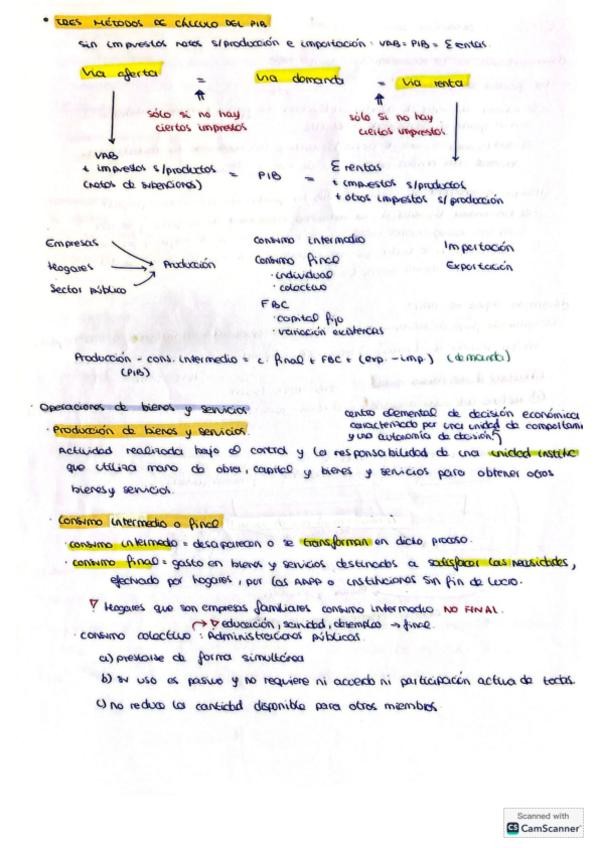 • TRES MÉTODOS DE CÁLCULO DEL PIB
Sin impuestos netos s/producción e importación: VAB = PIB = Σ rentas.
Vía oferta = Vía demanda = Vía renta
sólo si no hay ciertos impuestos
sólo si no hay ciertos impuestos
VAB
+ impuestos s/productos
(netos de subvenciones)
= PIB =
Σ rentas
+ impuestos s/productos
+ otros impuestos s/producción
Empresas
Hogares
Sector público
Producción
Consumo intermedio
Consumo final
· individual
· colectivo
FBC
· capital fijo
· variación existencias
Importación
Exportación
Producción - cons. intermedio = c. final + FBC + (exp. - imp.) (demanda)
(PIB)
· Operaciones de bienes y servicios
centro elemental de decisión económica
caracterizado por una unidad de comportami
y una autonomía de decisión
· Producción de bienes y servicios.
Actividad realizada bajo el control y la responsabilidad de una unidad institc
que utiliza mano de obra, capital y bienes y servicios para obtener otros
bienes y servicios.
· Consumo intermedio o final
· consumo intermedio = desaparecen o se transforman en dicho proceso.
· consumo final = gasto en bienes y servicios destinados a satisfacer las necesidades,
efectuado por hogares, por las AAPP o instituciones sin fin de lucro.
Hogares que son empresas familiares consumo intermedio NO FINAL.
educación, sanidad, desempleo → final.
· consumo colectivo: Administraciones públicas.
a) prestarse de forma simultánea
b) su uso es pasivo y no requiere ni acuerdo ni participación activa de todos.
c) no reduce la cantidad disponible para otros miembros
Scanned with
CS CamScanner